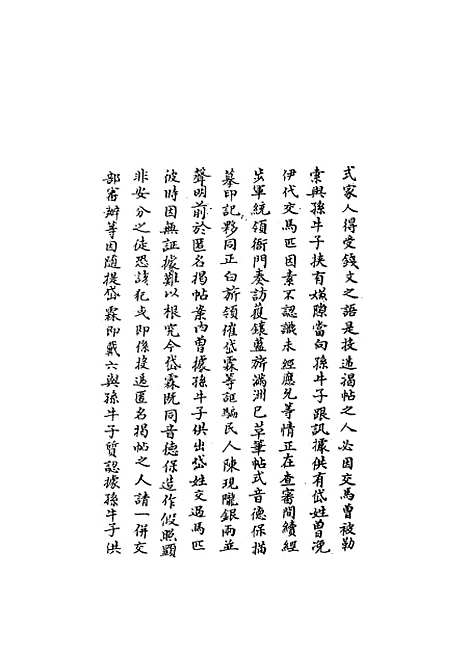 式家人得受錢文之語是投遞揭帖之人必因交馬曾被勒
索與孫牛子挾有嫌隙當向孫牛子跟訊據供有岱姓曾浼
伊代交馬匹因素不認識未經應允等情正在查審間續經
步軍統領衙門奏訪獲鑲藍旂滿洲已革筆帖式音德保描
摹印記夥同正白旂領催岱霖等誆騙民人陳現隴銀兩並
聲明前於匿名揭帖案內曾據孫牛子供出岱姓交過馬匹
彼時因無証據難以根究今岱霖既同音德保造作假照顯
非安分之徒恐該犯或即係投遞匿名揭帖之人請一併交
部審辦等因隨提岱霖即戴六與孫牛子質認據孫牛子供